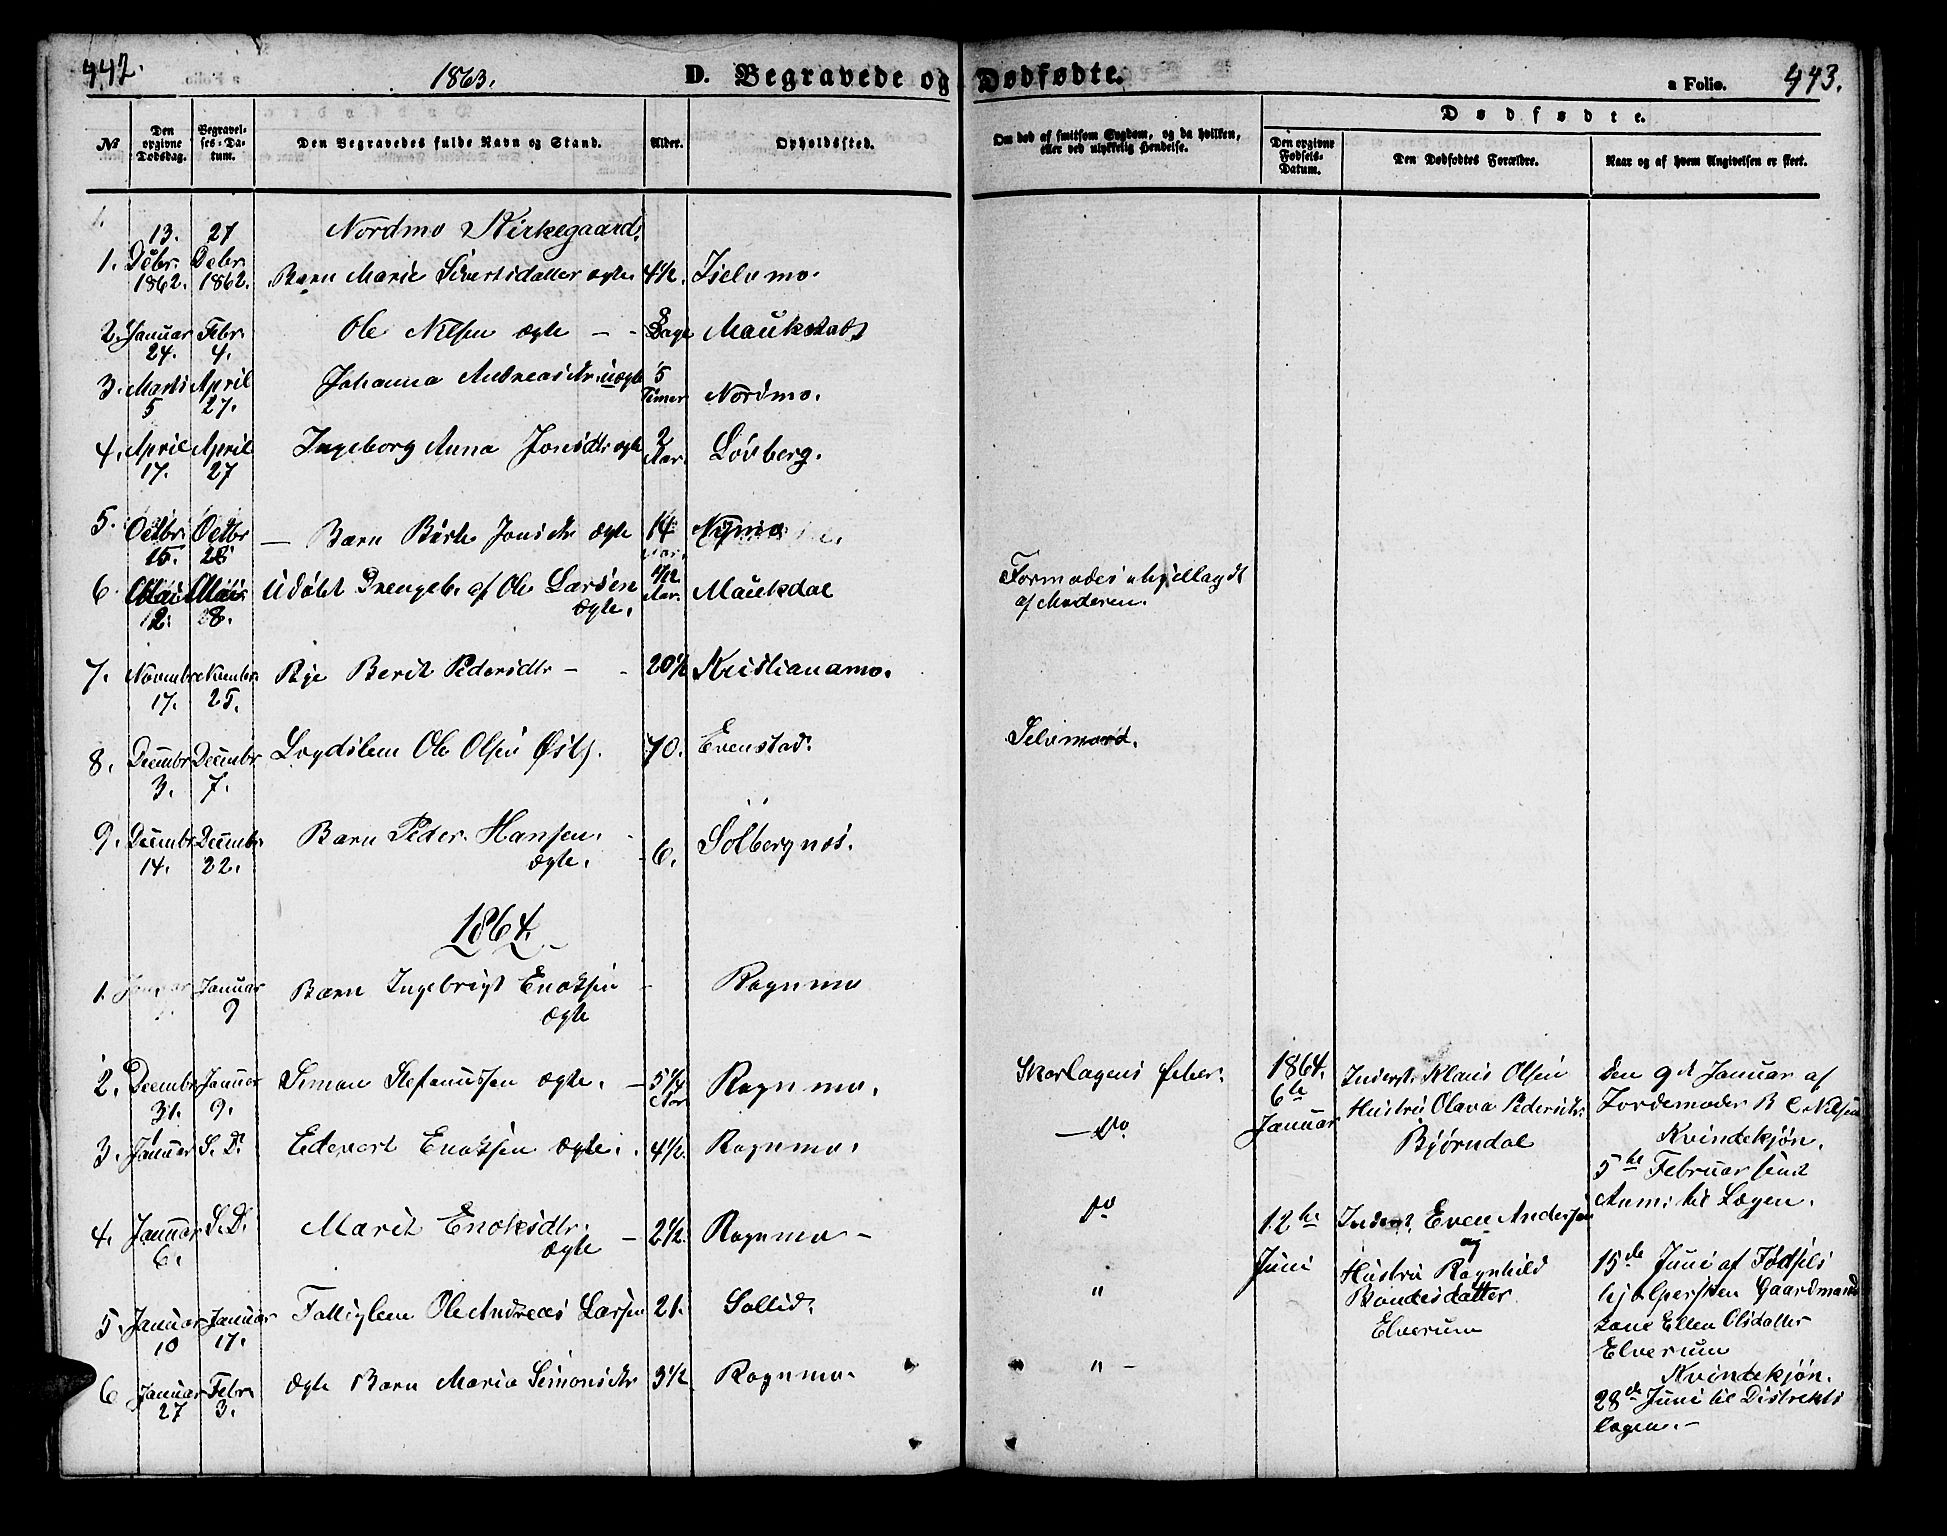 442.
1863.
D. Begravede og Dødfødte.
a Folio. 443.
№
Den opgivne Dødsdag.
Begravelses-Datum.
Den Begravedes fulde Navn og Stand.
Alder.
Opholdssted.
Om død af smitsom Sygdom, og da hvilken, eller ved ulykkelig Hendelse.
Dødfødte.
Den opgivne Fødsels-Datum.
Den Dødfødtes Forældre.
Naar og af hvem Angivelsen er skeet.
Nordmo Kirkegaard.
1. 13. Debr. 1862. 27 Debr. 1862. Barn Marie Sivertsdatter ægte. 4 1/2. Iselvmo.
2. Januar 24. Febr. 4. Ole Nilsen ægte - - 8 Dage
3. Marts 5 April 27. Johanna Andreasdtr. uægte 5 Timer Nordmo.
4. April 17. April 27 Ingeborg Anna Jonsdtr ægte 2 Aar. Løvberg.
5. Octbr. 15. Octbr 28 — Barn Jonsdtr ægte 14 Aar. Nymo
6. Mai 12. Mai 28. Udøbt Drengeb. af Ole Larsen ægte. Aar. Maukdal
Formodes ihjellagdt
af Moderen.
7. Novembr 17. Novembr. 25. Pige Berit Pedersdtr - - 20 1/2 Kristianamo.
8. Decembr 3. Decembr 7. Lægdslem Ole Olsen 70. Evenstad.
Selvmord.
9. Decembr 14. Decembr. 22. Barn Peder Hansen. ægte. 6. Solbergnes.
1864.
1. Januar Januar 9 Barn Ingebrigt Enoksen ægte - Rognmo
2. Decembr 31. Januar 9. Simon Stefanussen ægte. - 5 1/4 Aar Rognmo.
Skarlagens Feber.
3. Januar S. D. Edevart Enoksen ægte. 4 1/2. Rognmo.
— Do
4. Januar 6. S. D. Marit Enoksdtr. ægte - 2 1/2. Rognmo -
Do
5. Januar 10 Januar 17. Fattiglem Ole Andreas Larsen 21. Sollid.
"
6 Januar 27 Febr. 3. ægte Barn Maria Simonsdtr 3 1/2 Rognmo.
" -
1864.
6te
Januar
Inderst. Klaus Olsen
Hustru Olava Pedersdtr.
Bjørndal
Den 9de Januar af
Jordemoder Nilsen
Kvindekjøn.
5te Februar sendt
Anm. til Lægen.
12te
Juni
Inderst. Even Andersen
og
Hustru Ragnhild
Bondesdatter
Elverum
15de Juni af Fødsels
hjelpersken Gaardmands
kone Ellen Olsdatter
Elverum
Kvindekjøn.
28de Juni til Distrikts
lægen. -